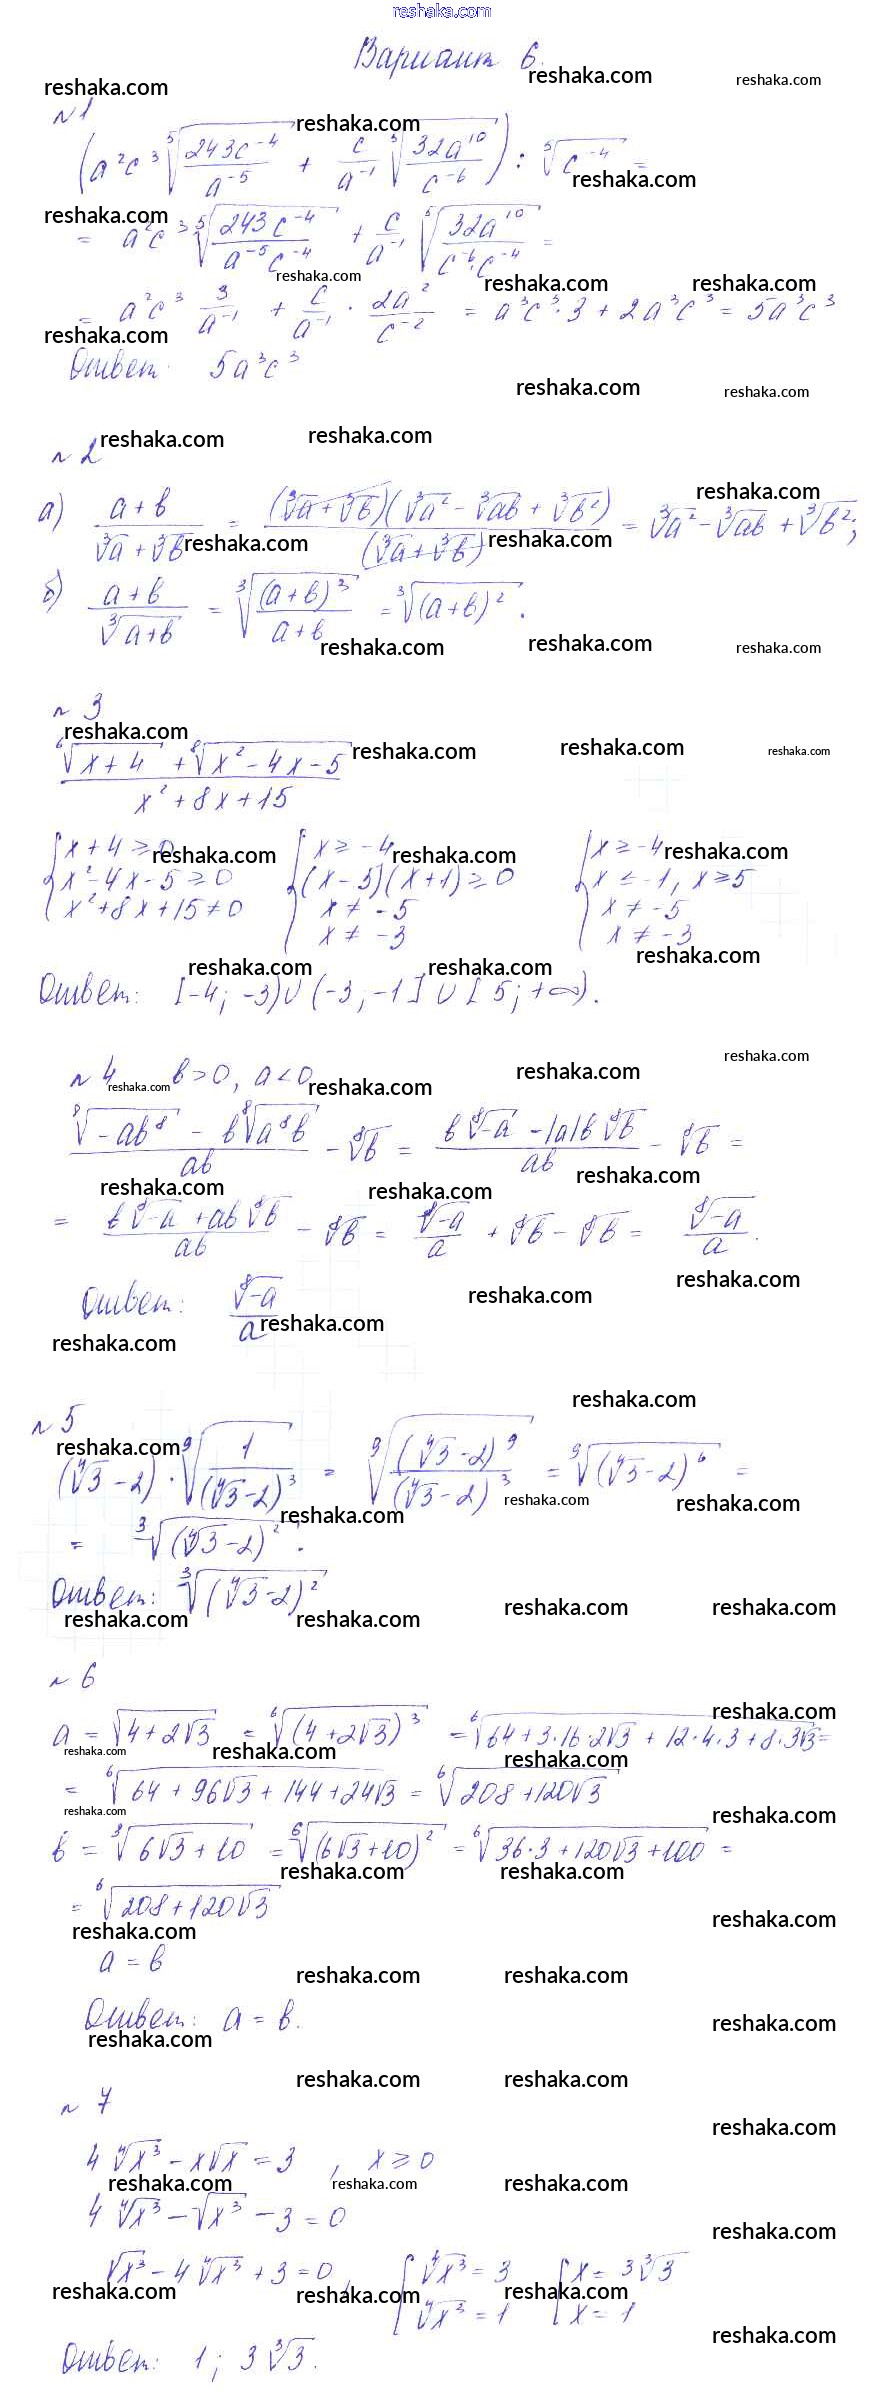 reshaka.com
Вариант 6.
№1
(a²c³ ⁵√(243c⁻⁴/a⁻⁵) + c/a⁻¹ ⁵√(32a¹⁰/c⁻⁶)) : ⁵√(c⁻⁴) =
= a²c³ ⁵√(243c⁻⁴/(a⁻⁵c⁻⁴)) + c/a⁻¹ ⁵√(32a¹⁰/(c⁻⁶·c⁻⁴)) =
= a²c³ 3/a⁻¹ + c/a⁻¹ · 2a²/c⁻² = a³c³·3 + 2a³c³ = 5a³c³
Ответ: 5a³c³
№2
а) (a+b)/(³√a + ³√b) = (³√a + ³√b)(³√a² − ³√ab + ³√b²)/(³√a + ³√b) = ³√a² − ³√ab + ³√b²;
б) (a+b)/³√(a+b) = ³√((a+b)³/(a+b)) = ³√(a+b)².
№3
(⁶√(x+4) + ⁸√(x²−4x−5))/(x²+8x+15)
{x+4≥0 {x≥−4 {x≥−4
x²−4x−5≥0 (x−5)(x+1)≥0 x≤−1, x≥5
x²+8x+15≠0 x≠−5 x≠−5
x≠−3 x≠−3
Ответ: [−4; −3)∪(−3; −1]∪[5; +∞).
№4 b>0, a<0
(⁸√(−ab⁸) − b⁸√(a⁸b))/ab − ⁸√b = (b⁸√(−a) − |a|b⁸√b)/ab − ⁸√b =
= (b⁸√(−a) + ab⁸√b)/ab − ⁸√b = ⁸√(−a)/a + ⁸√b − ⁸√b = ⁸√(−a)/a.
Ответ: ⁸√(−a)/a
№5
(⁴√3−2)·⁹√(1/(⁴√3−2)³) = ⁹√((⁴√3−2)⁹/(⁴√3−2)³) = ⁹√(⁴√3−2)⁶ =
= ³√(⁴√3−2)².
Ответ: ³√(⁴√3−2)²
№6
a = √(4+2√3) = ⁶√(4+2√3)³ = ⁶√(64+3·16·2√3+12·4·3+8·3√3) =
= ⁶√(64+96√3+144+24√3) = ⁶√(208+120√3)
b = ³√(6√3+10) = ⁶√(6√3+10)² = ⁶√(36·3+120√3+100) =
= ⁶√(208+120√3)
a = b
Ответ: a = b.
№7
4⁴√x³ − x√x = 3, x≥0
4⁴√x³ − √x³ − 3 = 0
√x³ − 4⁴√x³ + 3 = 0, [⁴√x³ = 3 [x = 3³√3
⁴√x³ = 1 x = 1
Ответ: 1; 3³√3.